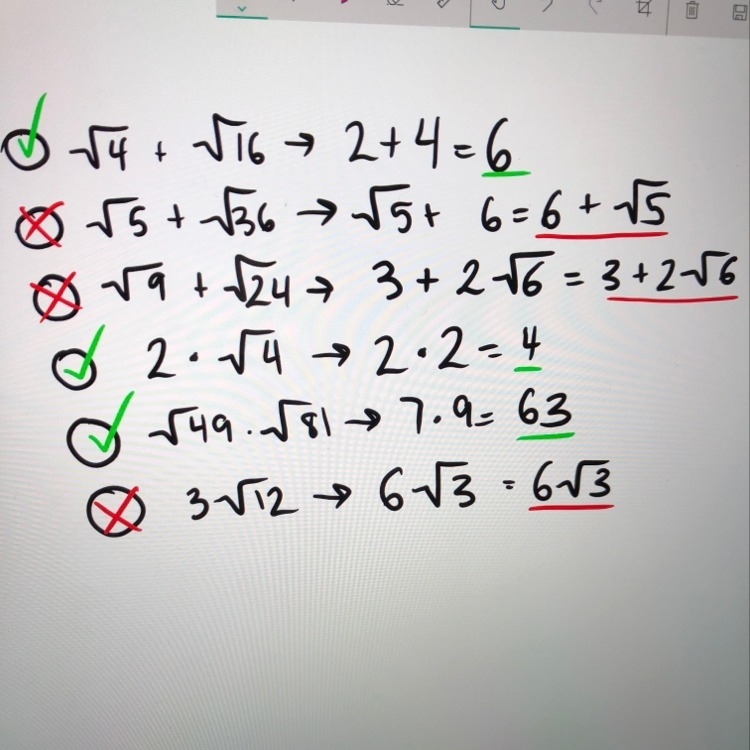 √4 + √16 → 2+4=6
√5 + √36 → √5+ 6=6+√5
√9 + √24 → 3+2√6 = 3+2√6
2·√4 → 2·2=4
√49·√81 → 7·9= 63
3√12 → 6√3 = 6√3